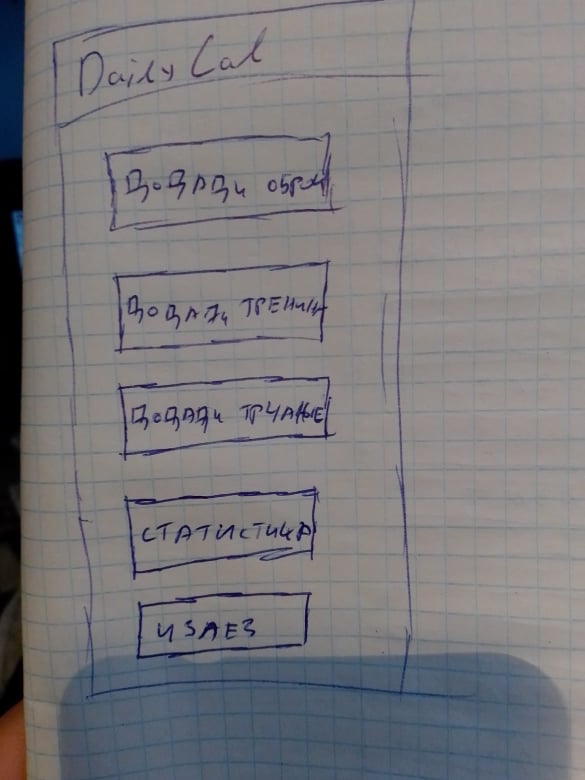 Daily Cal
ДОДАДИ ОБРОК
ДОДАДИ ТРЕНИНГ
ДОДАДИ ТРЧАЊЕ
СТАТИСТИКА
ИЗЛЕЗ